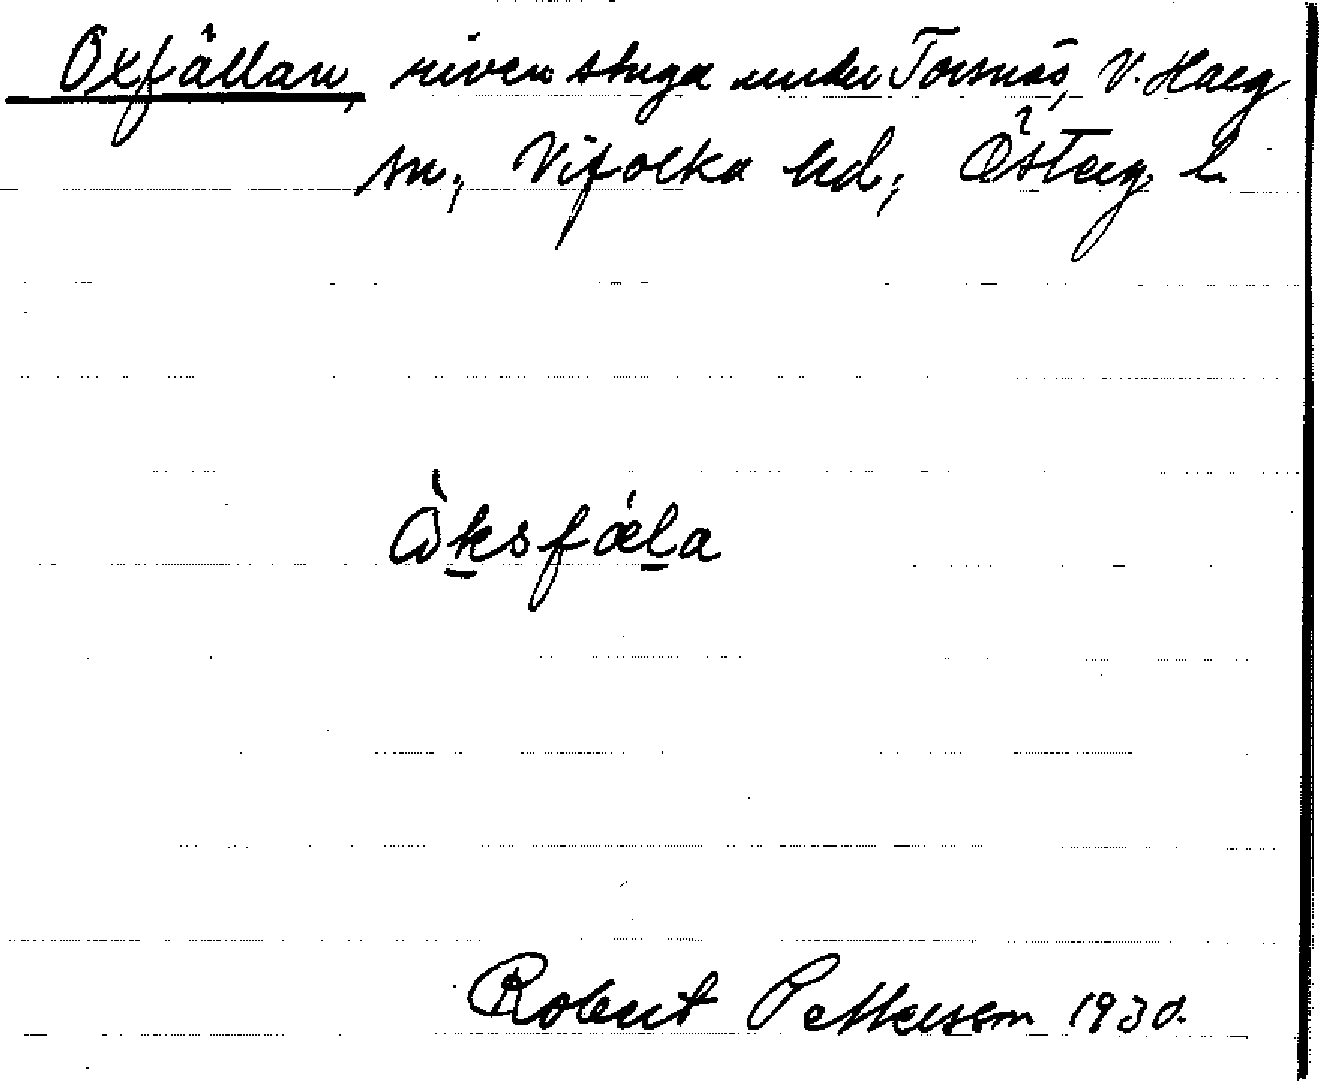 Oxfällan, riven stuga under Torsnäs, V. Harg
sn, Vifolka hd, Österg. l.
òksfæla
Robert Pettersson 1930.